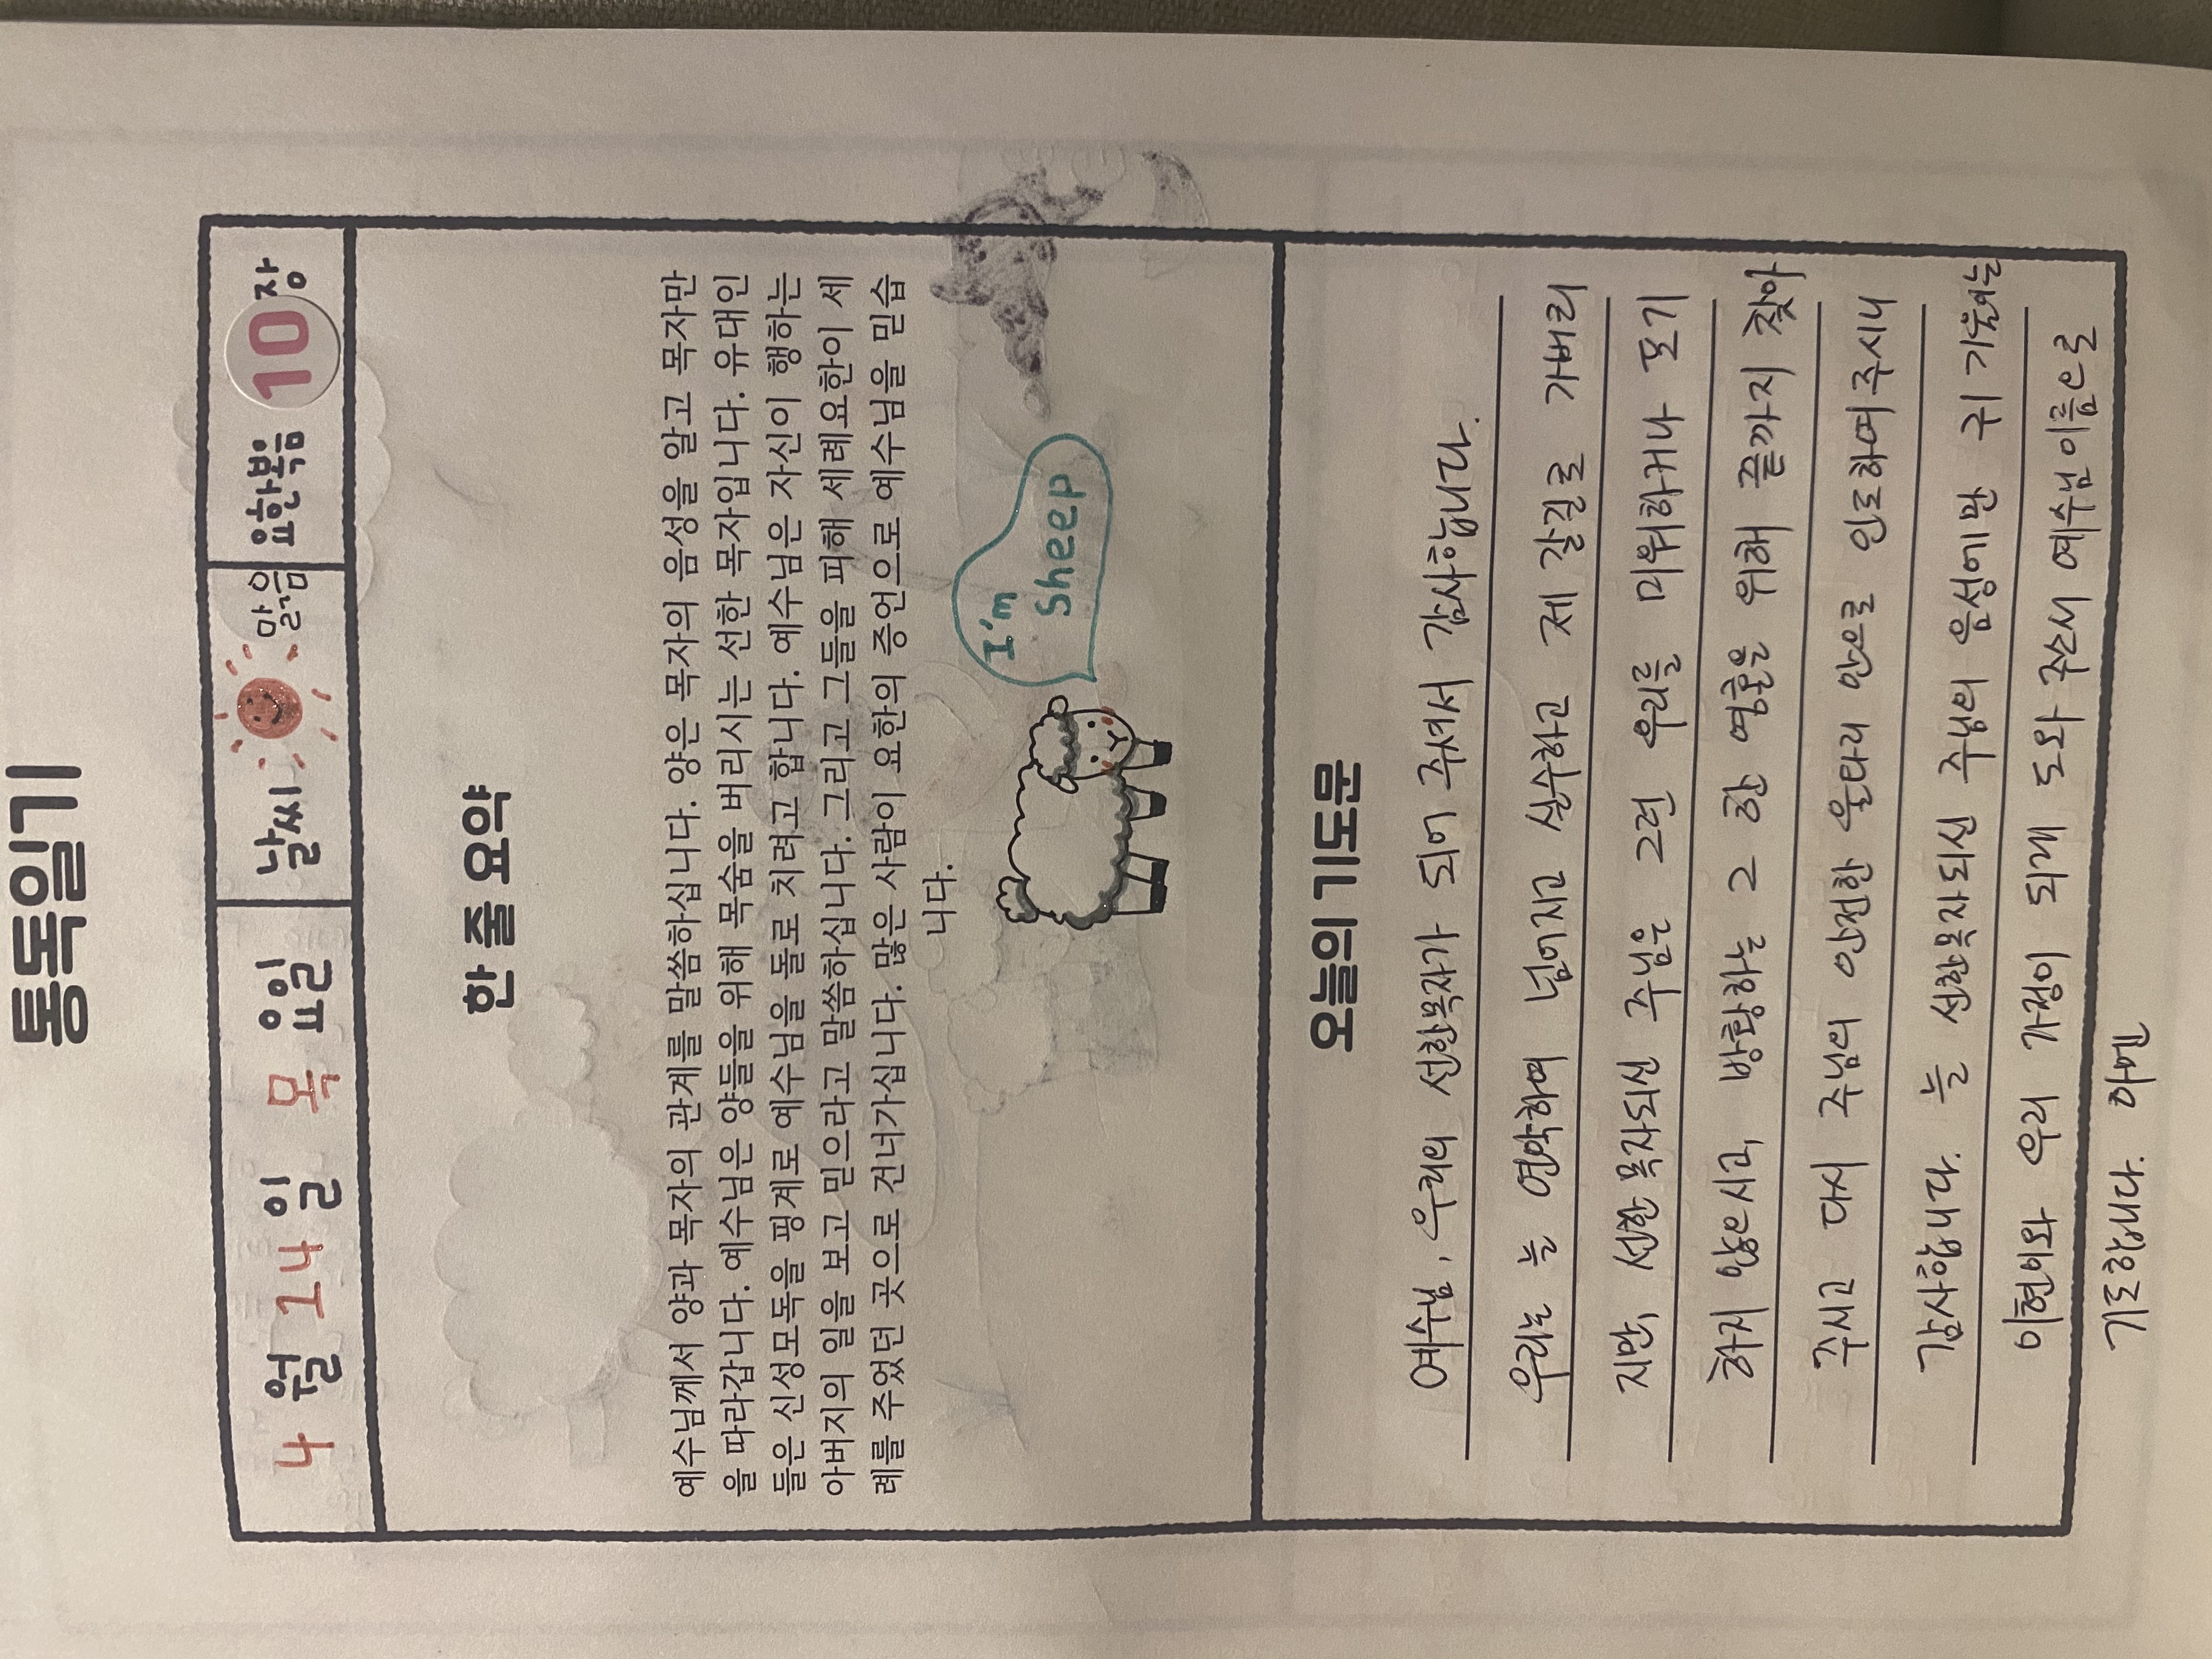 통독일기
4월 14일 목 요일 날씨 맑음 요한복음 10장
한 줄 요약
예수님께서 양과 목자의 관계를 말씀하십니다. 양은 목자의 음성을 알고 목자만
을 따라갑니다. 예수님은 양들을 위해 목숨을 버리시는 선한 목자입니다. 유대인
들은 신성모독을 핑계로 예수님을 돌로 치려고 합니다. 예수님은 자신이 행하는
아버지의 일을 보고 믿으라고 말씀하십니다. 그리고 그들을 피해 세례요한이 세
례를 주었던 곳으로 건너가십니다. 많은 사람이 요한의 증언으로 예수님을 믿습
니다.
I'm
Sheep
오늘의 기도문
예수님, 우리의 선한목자가 되어 주셔서 감사합니다.
우리는 늘 연약하여 넘어지고 실수하고 제 갈길로 가버리
지만, 선한 목자되신 주님은 그런 우리를 미워하거나 포기
하지 않으시고, 방황하는 그 한 영혼을 위해 끝까지 찾아
주시고 다시 주님의 안전한 울타리 안으로 인도하여주시니
감사합니다. 늘 선한목자되신 주님의 음성에만 귀 기울이는
이현이와 우리 가정이 되게 도와 주소서 예수님 이름으로
기도합니다. 아멘